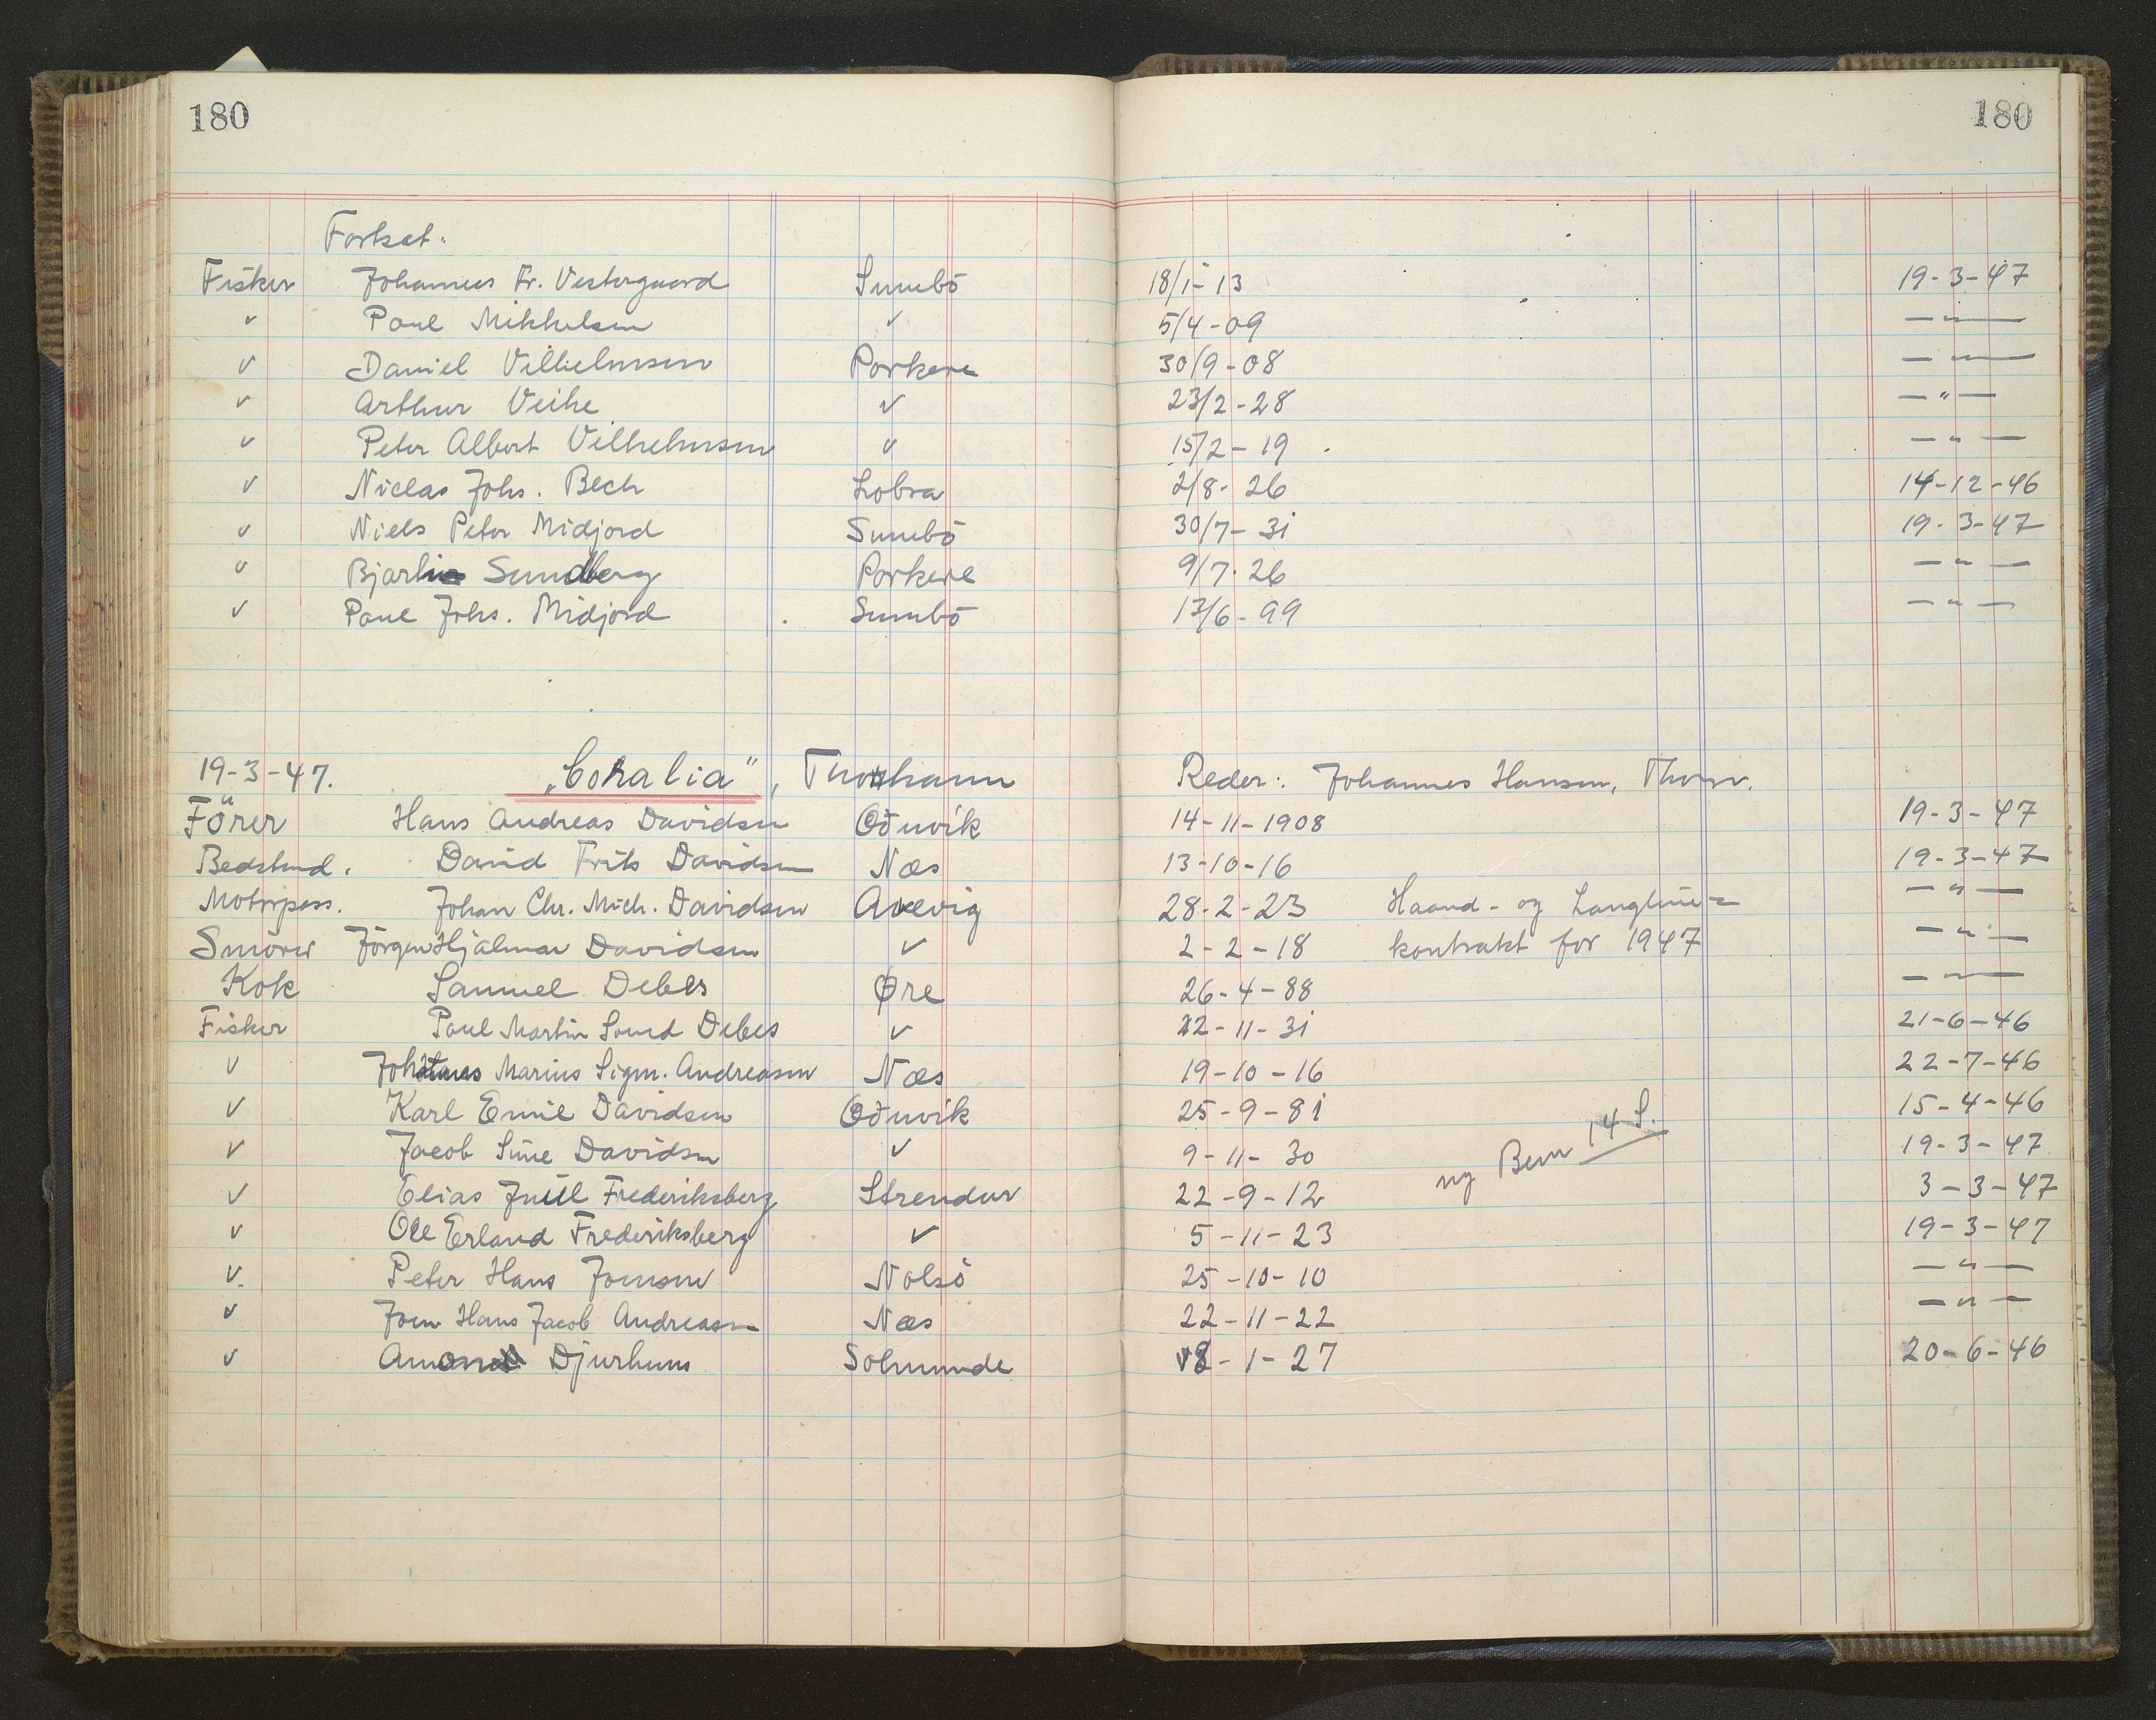 180 180
Fortsat.
Fisker Johannes Fr. Vestergaard Sumbö 18/1-13 19-3-47
" Poul Mikkelsen " 5/4-09 — " —
" Daniel Vilhelmsen Porkere 30/9-08 — " —
" Arthur Veihe " 23/2-28 — " —
" Peter Albert Vilhelmsen " 15/2-19 — " —
" Niclas Johs. Bech Lobra 2/8-26 14-12-46
" Niels Peter Midjord Sumbö 30/7-31 19-3-47
" Sundberg Porkere 9/7-26 — " —
" Poul Johs. Midjord Sumbö 13/6-99 — " —
19-3-47. "Coralia", Thorshavn Reder: Johannes Hansen, Thorsv.
Förer Hans Andreas Davidsen Oðnvik 14-11-1908 19-3-47
Bedstmd. David Frits Davidsen Næs 13-10-16 19-3-47
Motorpass. Johan Chr. Mich. Davidsen 28-2-23 Haand- og Langline- — " —
Smörer Jörgen Hjalmar Davidsen " 2-2-18 kontrakt for 1947 — " —
Kok Samuel Debes Øre 26-4-88 — " —
Fisker Poul Martin Debes " 22-11-31 21-6-46
" Marius Sigm. Andreasen Næs 19-10-16 22-7-46
" Karl Emil Davidsen Oðnvik 25-9-81 15-4-46
" Jacob Sine Davidsen " 9-11-30 ny Bem 14 S. 19-3-47
" Elias Juul Frederiksberg Strendur 22-9-12 3-3-47
" Ole Erland Frederiksberg " 5-11-23 19-3-47
" Peter Hans Joensen Nolsö 25-10-10 — " —
" Joen Hans Jacob Andreasen Næs 22-11-22 — " —
" Djurhuus Solmunde 8-1-27 20-6-46